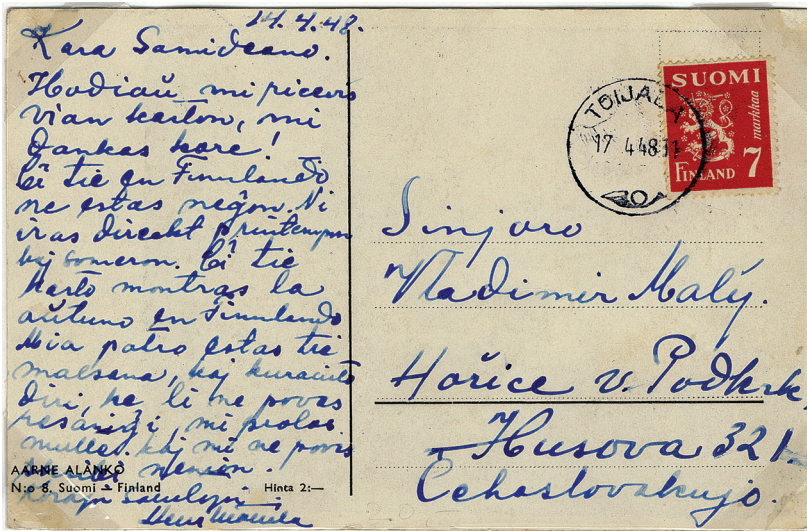 14.4.48.
Kara Samideano.
Hodiaŭ mi ricevis
vian karton, mi
dankas kore!
Ĉi tie en Finnlando
ne estas neĝon. Ni
iras direkt printempon
kaj someron. Ĉi tie
karto montras la
aŭtuno en Finnlando
Mia patro estas tre
malsana, kaj kuracisto
diri, ke li ne povas
resaniĝi, mi ploras
multe. kaj mi ne povis
nenion.
AARNE ALANKO
N:o 8. Suomi – Finland Hinta 2:—
Korajn salutojn
SUOMI
markkaa
FINLAND 7
TOIJALA
17.4.48
Sinjoro
Vladimir Malý.
Hořice v. Podkrk.
Husova 321
Ĉehoslovakujo.